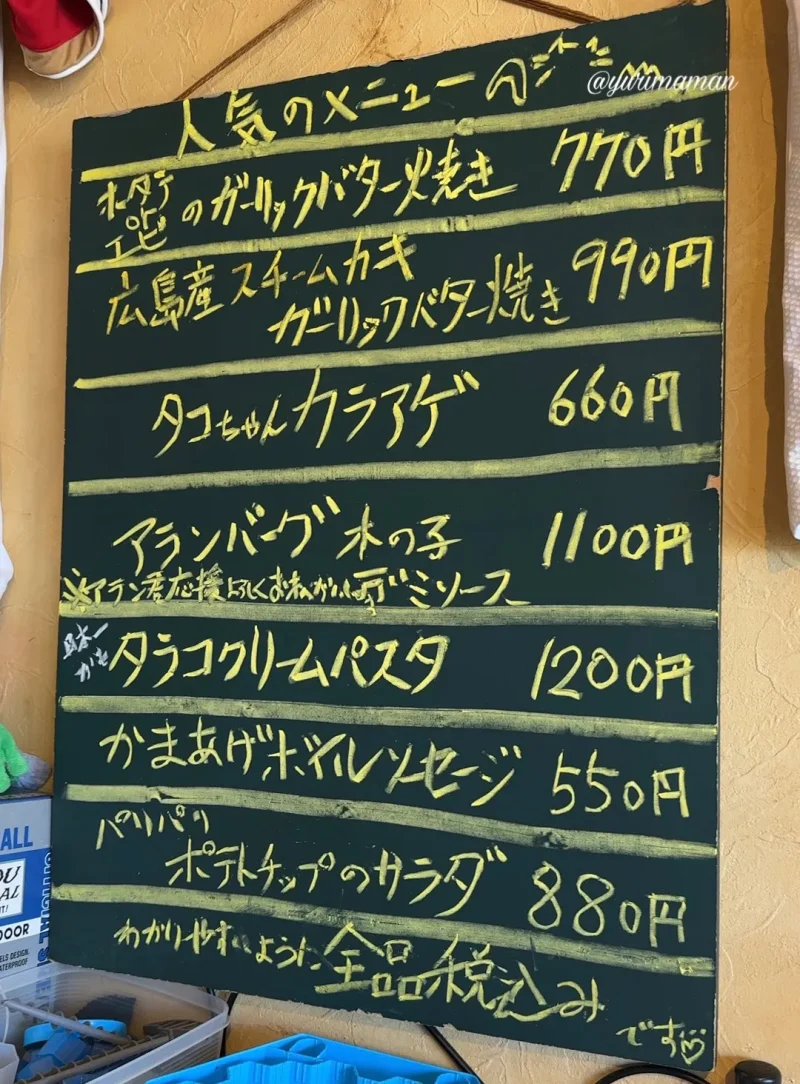 人気のメニュー
@yurimaman
ホタテとエビのガーリックバター焼き 770円
広島産スチームカキ
ガーリックバター焼き 990円
タコちゃんカラアゲ 660円
アランバーグ木の子 1100円
※アラン君応援よろしくおねがいします デミソース
日本一かも タラコクリームパスタ 1200円
かまあげボイルソーセージ 550円
パリパリ
ポテトチップのサラダ 880円
わかりやすいように全品税込み
です
ALL
DOOR